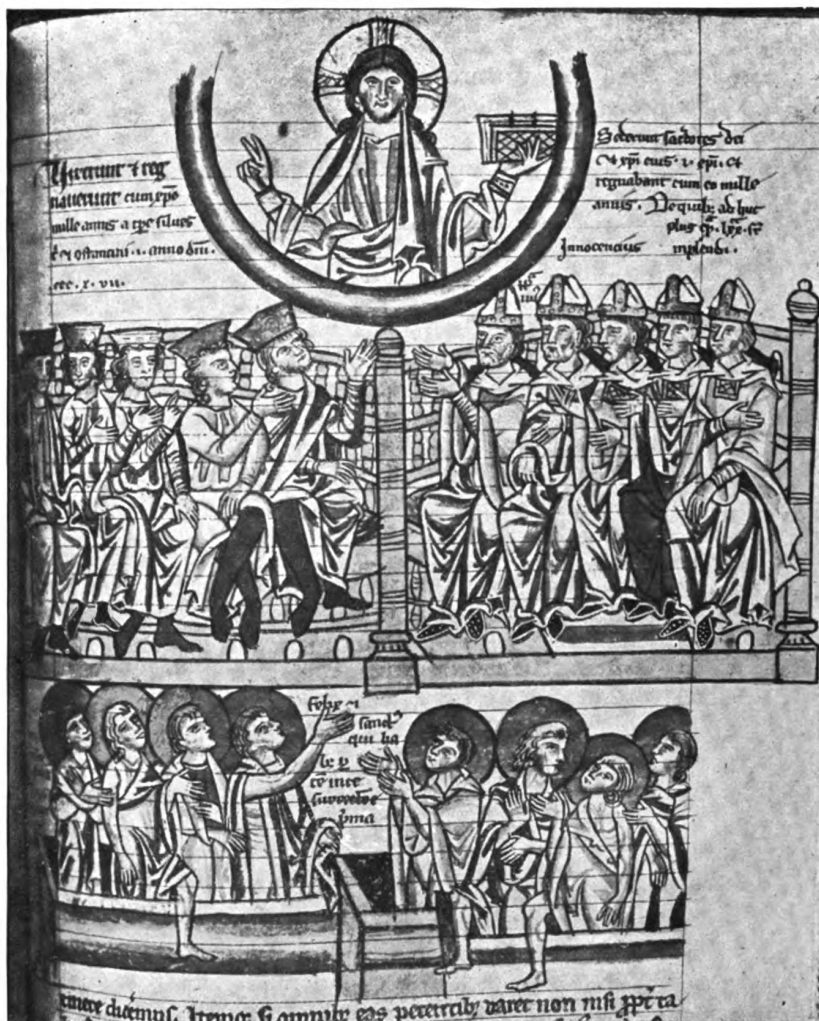 Vixerunt & reg
naverunt cum xpo
mille annis a tpe silves
et ɔstantini .i. anno dni.
ccc.x.vii.
Sederunt sacdotes dei
et xpi eius .i. epi. et
regnabant cum eo mille
annis. De quib; ad huc
plus lxx.
Innocencius
implendi.
felix
sanct
qui ha
te in re
surrectoe
pma
dicemus. si omnib; eas petentib; daret non nisi ppt ca